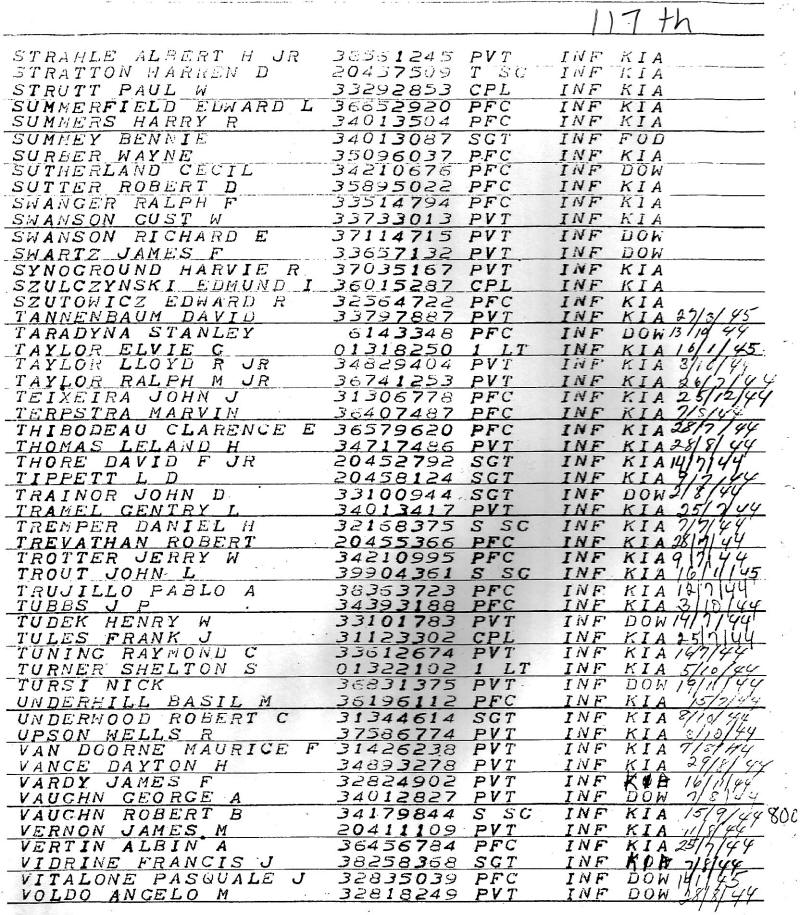 117th
STRAHLE ALBERT H JR 38561245 PVT INF KIA
STRATTON WARREN D 20437509 T SG INF KIA
STRUTT PAUL W 33292853 CPL INF KIA
SUMMERFIELD EDWARD L 36652920 PFC INF KIA
SUMMERS HARRY R 34013504 PFC INF KIA
SUMMEY BENNIE 34013087 SGT INF FOD
SURBER WAYNE 35096037 PFC INF KIA
SUTHERLAND CECIL 34210676 PFC INF DOW
SUTTER ROBERT D 35895022 PFC INF KIA
SWANGER RALPH F 33514794 PFC INF KIA
SWANSON GUST W 33733013 PVT INF KIA
SWANSON RICHARD E 37114715 PVT INF DOW
SWARTZ JAMES F 33657132 PVT INF DOW
SYNOGROUND HARVIE R 37035167 PVT INF KIA
SZULCZYNSKI EDMUND I 36015287 CPL INF KIA
SZUTOWICZ EDWARD R 32564722 PFC INF KIA
TANNENBAUM DAVID 33797887 PVT INF KIA 27/3/45
TARADYNA STANLEY 6143348 PFC INF DOW 13/10/44
TAYLOR ELVIE G 01318250 1 LT INF KIA 16/1/45
TAYLOR LLOYD R JR 34829404 PVT INF KIA
TAYLOR RALPH M JR 36741253 PVT INF KIA 26/7/44
TEIXEIRA JOHN J 31306778 PFC INF KIA 25/12/44
TERPSTRA MARVIN 36407487 PFC INF KIA 7/8/44
THIBODEAU CLARENCE E 36579620 PFC INF KIA 28/7/44
THOMAS LELAND H 34717486 PVT INF KIA 28/8/44
THORE DAVID F JR 20452792 SGT INF KIA 14/7/44
TIPPETT L D 20458124 SGT INF KIA 9/7/44
TRAINOR JOHN D 33100944 SGT INF DOW 2/8/44
TRAMEL GENTRY L 34013417 PVT INF KIA 25/7/44
TREMPER DANIEL H 32168375 S SG INF KIA 7/7/44
TREVATHAN ROBERT 20455366 PFC INF KIA 28/7/44
TROTTER JERRY W 34210995 PFC INF KIA 9/7/44
TROUT JOHN L 39904361 S SG INF KIA 16/1/45
TRUJILLO PABLO A 38353723 PFC INF KIA 12/7/44
TUBBS J P 34393188 PFC INF KIA 3/10/44
TUDEK HENRY W 33101783 PVT INF DOW 14/7/44
TULES FRANK J 31123302 CPL INF KIA 25/7/44
TUNING RAYMOND C 33612674 PVT INF KIA 14/7/44
TURNER SHELTON S 01322102 1 LT INF KIA 5/10/44
TURSI NICK 36831375 PVT INF DOW 19/11/44
UNDERHILL BASIL M 36196112 PFC INF KIA 15/7/44
UNDERWOOD ROBERT C 31344614 SGT INF KIA 8/10/44
UPSON WELLS R 37586774 PVT INF KIA
VAN DOORNE MAURICE F 31426238 PVT INF KIA 7/8/44
VANCE DAYTON H 34893278 PVT INF KIA 29/8/44
VARDY JAMES F 32824902 PVT INF
VAUGHN GEORGE A 34012827 PVT INF DOW 7/8/44
VAUGHN ROBERT B 34179844 S SG INF KIA 15/9/44 800
VERNON JAMES M 20411109 PVT INF KIA 11/8/44
VERTIN ALBIN A 36456784 PFC INF KIA 25/7/44
VIDRINE FRANCIS J 38258368 SGT INF 7/8/44
VITALONE PASQUALE J 32835039 PFC INF DOW
VOLDO ANGELO M 32818249 PVT INF DOW 28/8/44